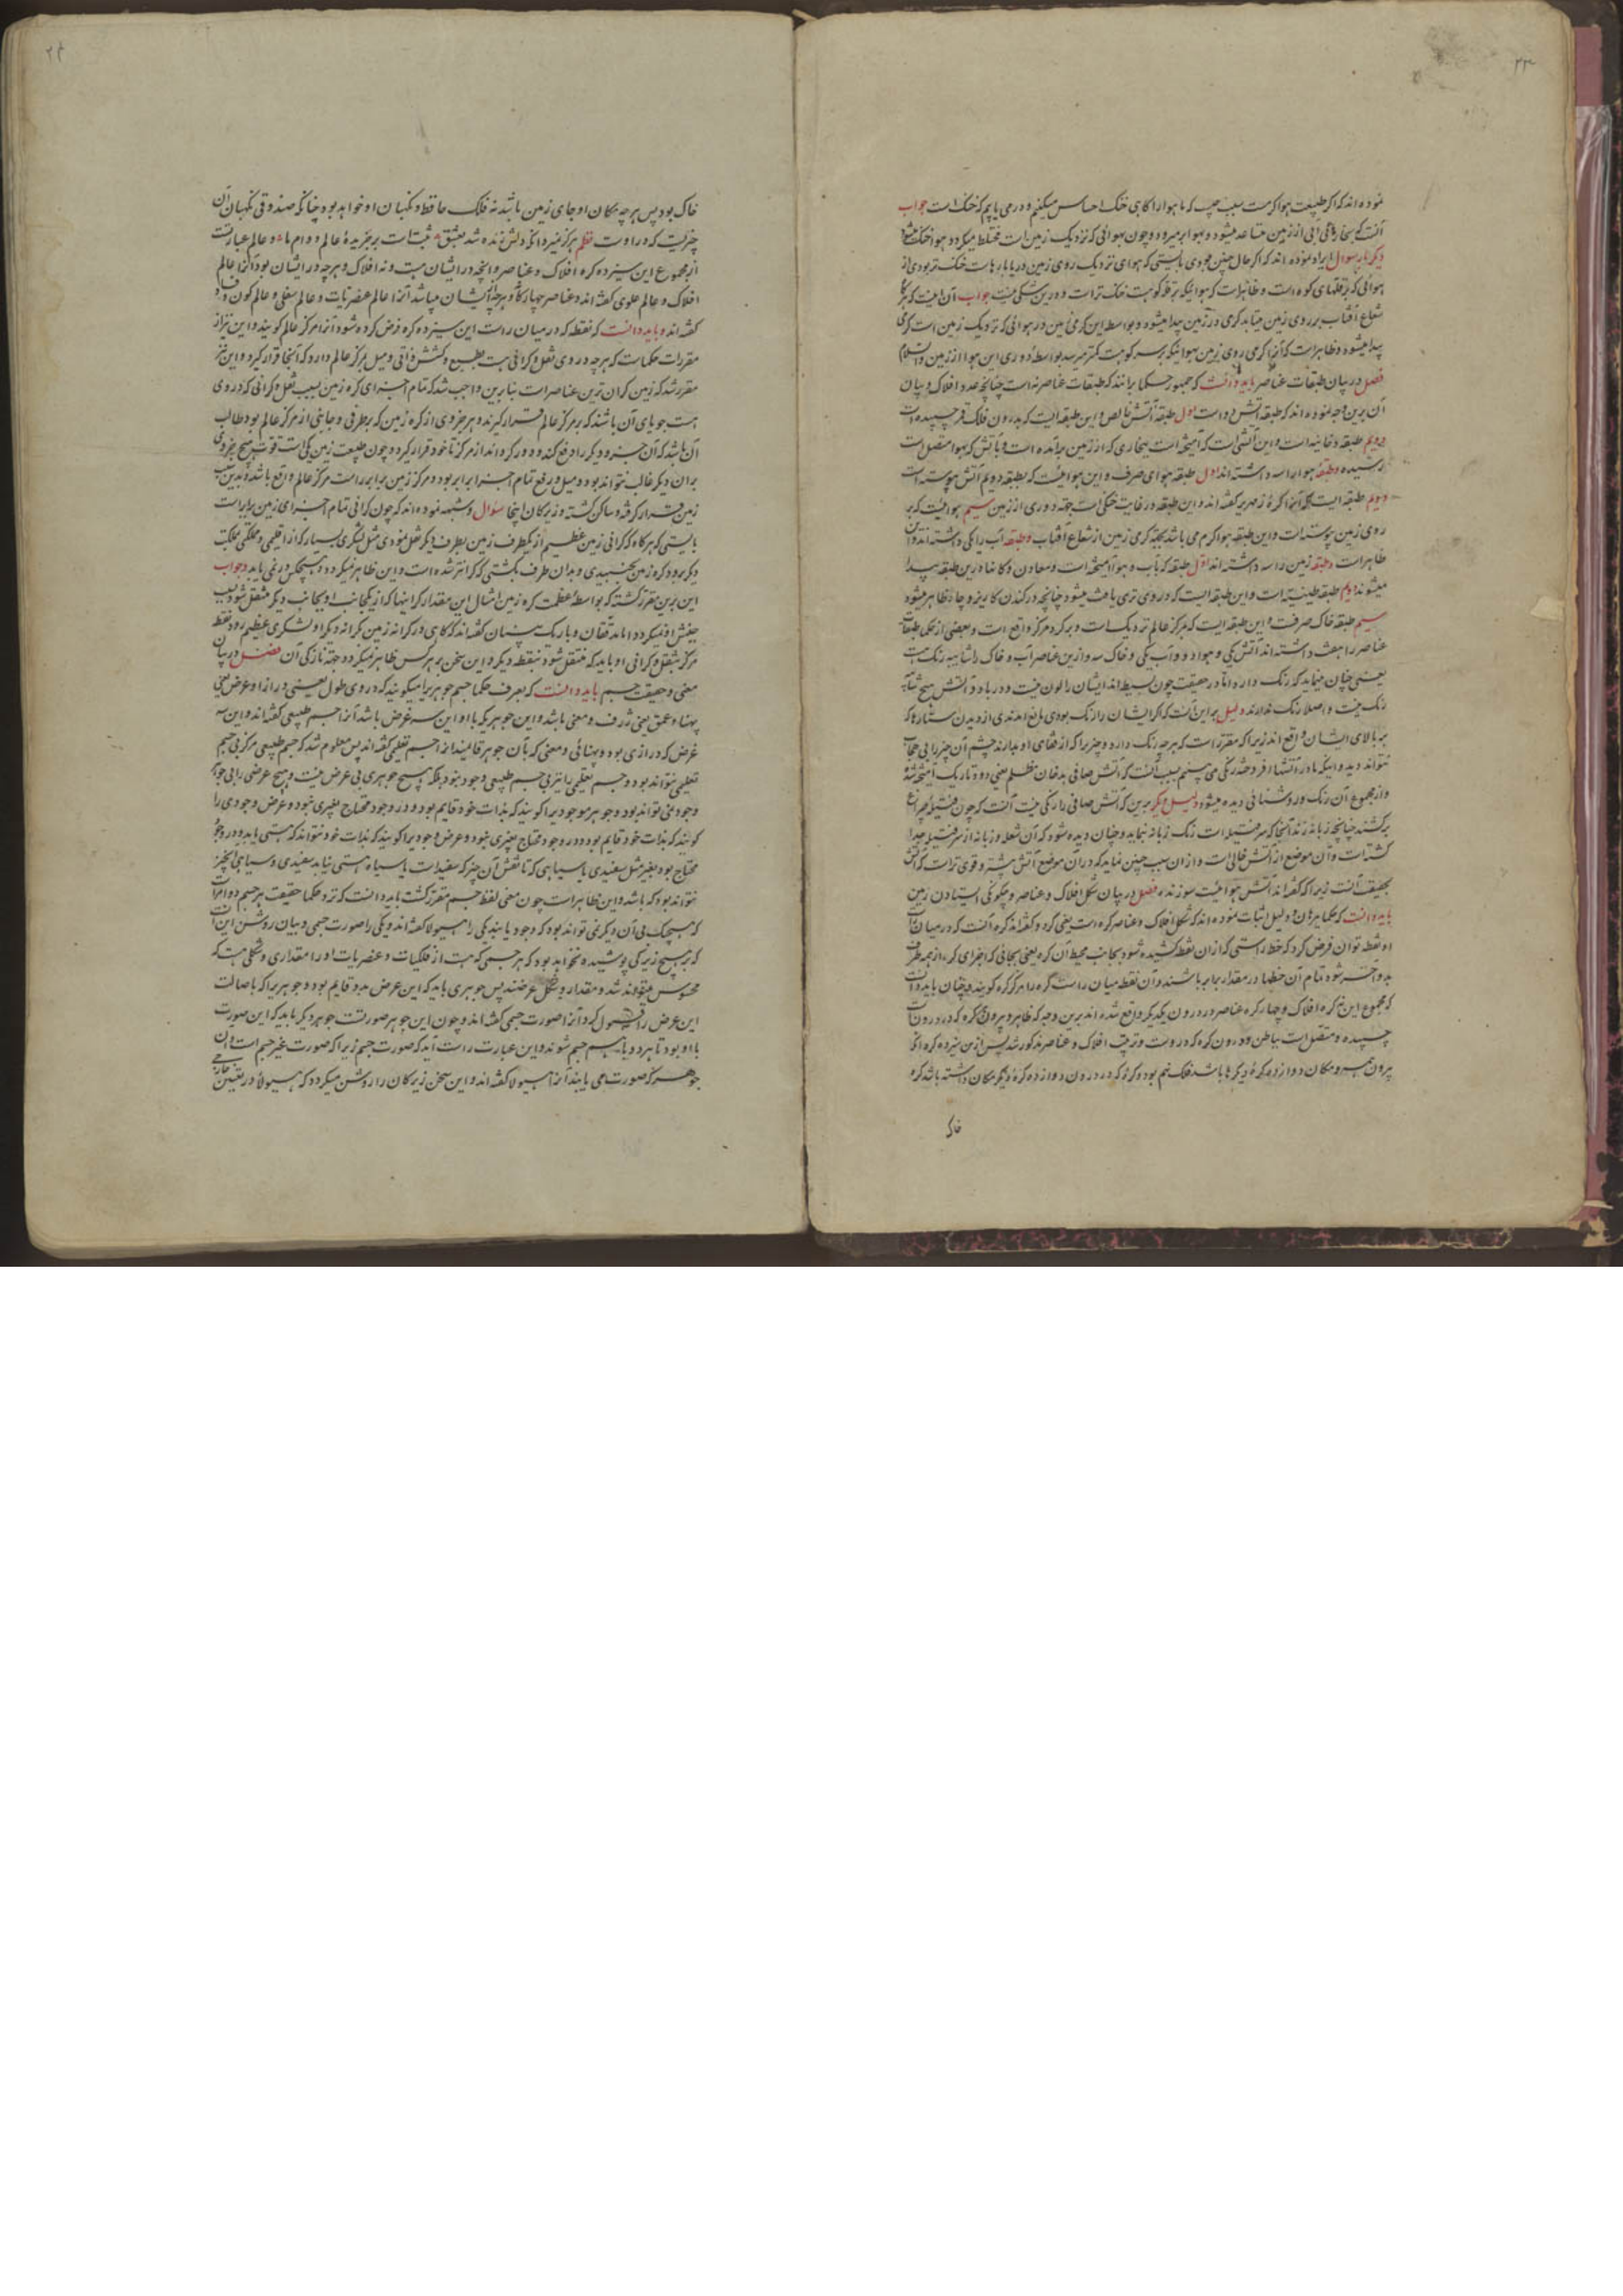 ۲۳
نموده‌اند که اگر طبیعت هوا گرمست سبب چیست که ما هوا را گاهی خنک احساس میکنیم و در می یابیم که خنک است جواب
آنست که بخارهای آبی از زمین متصاعد میشود و بهوا بر میرود و چون بهوائی که نزدیک زمین است مختلط میگردد هوا خنک میشود
دیگر بار سوال ایراد نموده اند که اگر حال چنین بودی بایستی که هوای نزدیک روی زمین و دریا بارها خنک تر بودی از
هوائی که بر قلهای کوه است و ظاهر است که هوائیکه بر قله کوهست خنک تر است و درین شکی نیست جواب آن اینست که هرگاه
شعاع آفتاب بر روی زمین میتابد گرمی در زمین پیدا میشود و بواسطه این گرمی زمین در هوائی که نزدیک زمین است گرمی
پیدا میشود و ظاهر است که آنرا گرمی روی زمین بهوائیکه بر سر کوهست کمتر میرسد بواسطه دوری این هوا از زمین والسلام
فصل در بیان طبقات عناصر باید دانست که جمهور حکما برانند که طبقات عناصر نه است چنانچه عدد افلاک و بیان
آن برین وجه نموده اند که طبقه آتش دو است اول طبقه آتش خالص و این طبقه ایست که بدرون فلک قمر چسپیده است
دویم طبقه دخانیه است و این آتشی است که آمیخته است ببخاری که از زمین برآمده است و تا آتش که بهوا متصل است
رسیده و طبقه هوا را سه داشته اند اول طبقه هوای صرف و این هوائیست که بطبقه دویم آتش پیوسته است
دویم طبقه ایست که آنرا کره زمهریر گفته اند و این طبقه در غایت خنکی است بجهة دوری از زمین سیم هوائیست که بر
روی زمین پیوسته است و این طبقه هوا گرم می باشد بجهة گرمی زمین از شعاع آفتاب و طبقه آب را یکی داشته اند و آن
ظاهر است و طبقه زمین را سه داشته اند اول طبقه که بآب و هوا آمیخته است و معادن و کانها درین طبقه پیدا
میشوند دویم طبقه طینیه است و این طبقه ایست که در وی تری یافت میشود چنانچه در کندن کاریز و چاه ظاهر میشود
سیم طبقه خاک صرفست و این طبقه ایست که بمرکز عالم نزدیک است و بر گرد مرکز واقع است و بعضی از حکما طبقات
عناصر را هفت داشته اند آتش یکی و هوا دو و آب یکی و خاک سه و ازین عناصر آب و خاک را شایبه رنگ هست
یعنی چنان مینماید که رنگ دارند اما در حقیقت چون بسیط اند ایشان را لون نیست و در باد و آتش هیچ شایبه
رنگ نیست و اصلا رنگ ندارند و دلیل بر این آنست که اگر ایشان را رنگ بودی مانع آمدندی از دیدن ستارها که
بر بالای ایشان واقع اند زیرا که مقرر است که هرچه رنگ دارد و چیزیرا که از قفای او بدارند چشم آن چیز را بی حجاب
نتواند دید و اینکه ما در آتشها افروخته رنگی می بینیم بسبب آنست که آتش صافی بدخان مظلم یعنی دود تاریک آمیخته شده
و از مجموع آن رنگ و روشنائی دیده میشود و دلیل دیگر برین که آتش صافی را رنگی نیست آنست که چون فتیله چراغ
برکشند چنانچه زبانه زند آنجا که سر فتیله است رنگ زبانه ننماید و چنان دیده شود که آن شعله و زبانه از سر فتیله جدا
گشته است و آن موضع از آتش خالی است و از آن سبب چنین نماید که در آن موضع آتش بیشتر و قوی تر است که آتش
بحقیقت آنست زیرا که گفته اند آتش هوائیست سوزنده فصل در بیان شکل افلاک و عناصر و چگونگی ایستادن زمین
باید دانست که حکما ببرهان و دلیل اثبات نموده اند که شکل افلاک و عناصر کره است یعنی گرد و گفته اند کره آنست که در میان
او نقطه توان فرض کرد که خط راستی که از آن نقطه کشیده شود بجانب محیط آن کره یعنی بجائی که اجزای کره از همه طرف
بدو آخر شود تمام آن خطها در مقدار برابر باشند و آن نقطه میان راست کره را مرکز کره گویند و چنان باید دانست
که مجموع این نه کره افلاک و چهار کره عناصر در درون یکدیگر واقع شده اند برین وجه که ظاهر و بیرون هر کره که در درون است
چسپیده و متصل است بباطن و درون کره که در وست و ترتیب افلاک و عناصر مذکور شد پس ازین سیزده کره آنکه
بیرون همه و مکان دوازده کره دیگرها باشد فلک نهم بود و کره که در درون دوازده کره دیگر مکان داشته باشد کره
خاک
۲۴
خاک بود پس هرچه مکان او جای زمین باشد نه فلک حافظ و نگهبان او خواهد بود چنانکه صندوقی نگهبان آن
چیزیست که در اوست نظم هرگز نمیرد آنکه دلش زنده شد بعشق ثبت است بر جریده عالم دوام ما و عالم عبارتست
از مجموع این سیزده کره افلاک و عناصر و آنچه در ایشان هست و نه افلاک و هرچه در ایشان بود آنرا عالم
افلاک و عالم علوی گفته اند و عناصر چهارگانه و هرچه از ایشان میباشد آنرا عالم عنصریات و عالم سفلی و عالم کون و فساد
گفته اند و باید دانست که نقطه که در میان راست این سیزده کره فرض کرده شود آنرا مرکز عالم گویند و این نیز از
مقررات حکماست که هرچه در وی ثقل و گرانی هست بطبع و کشش ذاتی و میل بمرکز عالم دارد که آنجا قرار گیرد و این نیز
مقرر شد که زمین گران ترین عناصر است بنابرین واجب شد که تمام اجزای کره زمین بسبب ثقل و گرانی که در وی
هست جویای آن باشند که بر مرکز عالم قرار گیرند و هر جزوی از کره زمین که بطرفی و جانبی از مرکز عالم بود طالب
آن باشد که آن جزو دیگر را دفع کند و دور گرداند از مرکز تا خود قرار گیرد و چون طبیعت زمین یکی است قوت هیچ جزوی
بر آن دیگر غالب نتواند بود و میل و رفع تمام اجزا برابر بود و مرکز زمین برابر راست مرکز عالم واقع باشد و بدین سبب
زمین قرار گرفته و ساکن گشته و زیرکان اینجا سوال و شبهه نموده اند که چون گرانی تمام اجزای زمین برابر است
بایستی که هرگاه که گرانی زمین عظیم از یکطرف زمین بطرف دیگر نقل نمودی مثل لشگری بسیار که از اقلیمی و مملکتی بمملکت
دیگر رود کره زمین بجنبیدی و بدان طرف بگشتی که گرانتر شده است و این ظاهر نمیگردد و هیچکس در نمی یابد جواب
این برین مقرر گشته که بواسطه عظمت کره زمین امثال این مقدار گرانیها که از یکجانب او بجانب دیگر منتقل شود سبب
جنبش او نمیگردد اما مدققان و باریک بینان گفته اند که گاهی در کرانه زمین بکرانه دیگر او لشکری عظیم رود نقطه
مرکز ثقل و گرانی او باید که منتقل شود بنقطه دیگر و این سخن بر هر کس ظاهر نمیگردد بجهة نازکی آن فصل در بیان
معنی و حقیقت جسم باید دانست که بعرف حکما جسم جوهریرا میگویند که در وی طول یعنی درازا و عرض یعنی
پهنا و عمق یعنی ژرف و معنی باشد و این جوهریکه با او این سه عرض باشد آنرا جسم طبیعی گفته اند و این سه
عرض که درازی بود و پهنائی و معنی که بآن جوهر قایمند آنرا جسم تعلیمی گفته اند پس معلوم شد که جسم طبیعی هرگز بی جسم
تعلیمی نتواند بود و جسم تعلیمی را نیز بی جسم طبیعی وجود نبود بلکه هیچ جوهری بی عرض نیست و هیچ عرضی را بی جوهر
وجود نمی تواند بود و جوهر موجودیرا گویند که بذات خود قایم بود و در وجود محتاج بغیری نبود و عرض وجودی را
گویند که بذات خود قایم بود و در وجود محتاج بغیری نبود و عرض وجودیرا گویند که بذات خود نتواند که هستی یابد و در وجود
محتاج بود بغیر مثل سفیدی یا سیاهی که تا نقش آن چیز که سفید است یا سیاه هستی نیابد سفیدی و سیاهی آنچیز
نتواند بود که باشد و این ظاهر است چون معنی لفظ جسم مقرر گشت باید دانست که نزد حکما حقیقت هر جسم دو امر است
که هیچیک بی آن دیگر نمی تواند بود که وجود یابند یکی را هیولا گفته اند و یکی را صورت جسمی و بیان روشن این آنست
که بر هیچ زیرکی پوشیده نخواهد بود که هر جسمی که هست از فلکیات و عنصریات او را مقداری و شکلی هست که
محسوس میتوانند شد و مقدار و شکل عرضند پس جوهری باید که این عرض بدو قایم بود و جوهریرا که باصالت
این عرض را قبول کرد آنرا صورت جسمی گفته اند و چون این جوهر صورتست جوهر دیگر باید که این صورت
با او بود تا هر دو باهم جسم شوند و این عبارت راست آید که صورت جسم زیرا که صورت بغیر جسم است و آن
جوهر که صورت می یابند آنرا هیولا گفته اند و این سخن زیرکان را روشن میگردد که هیولا در تعین خارجی